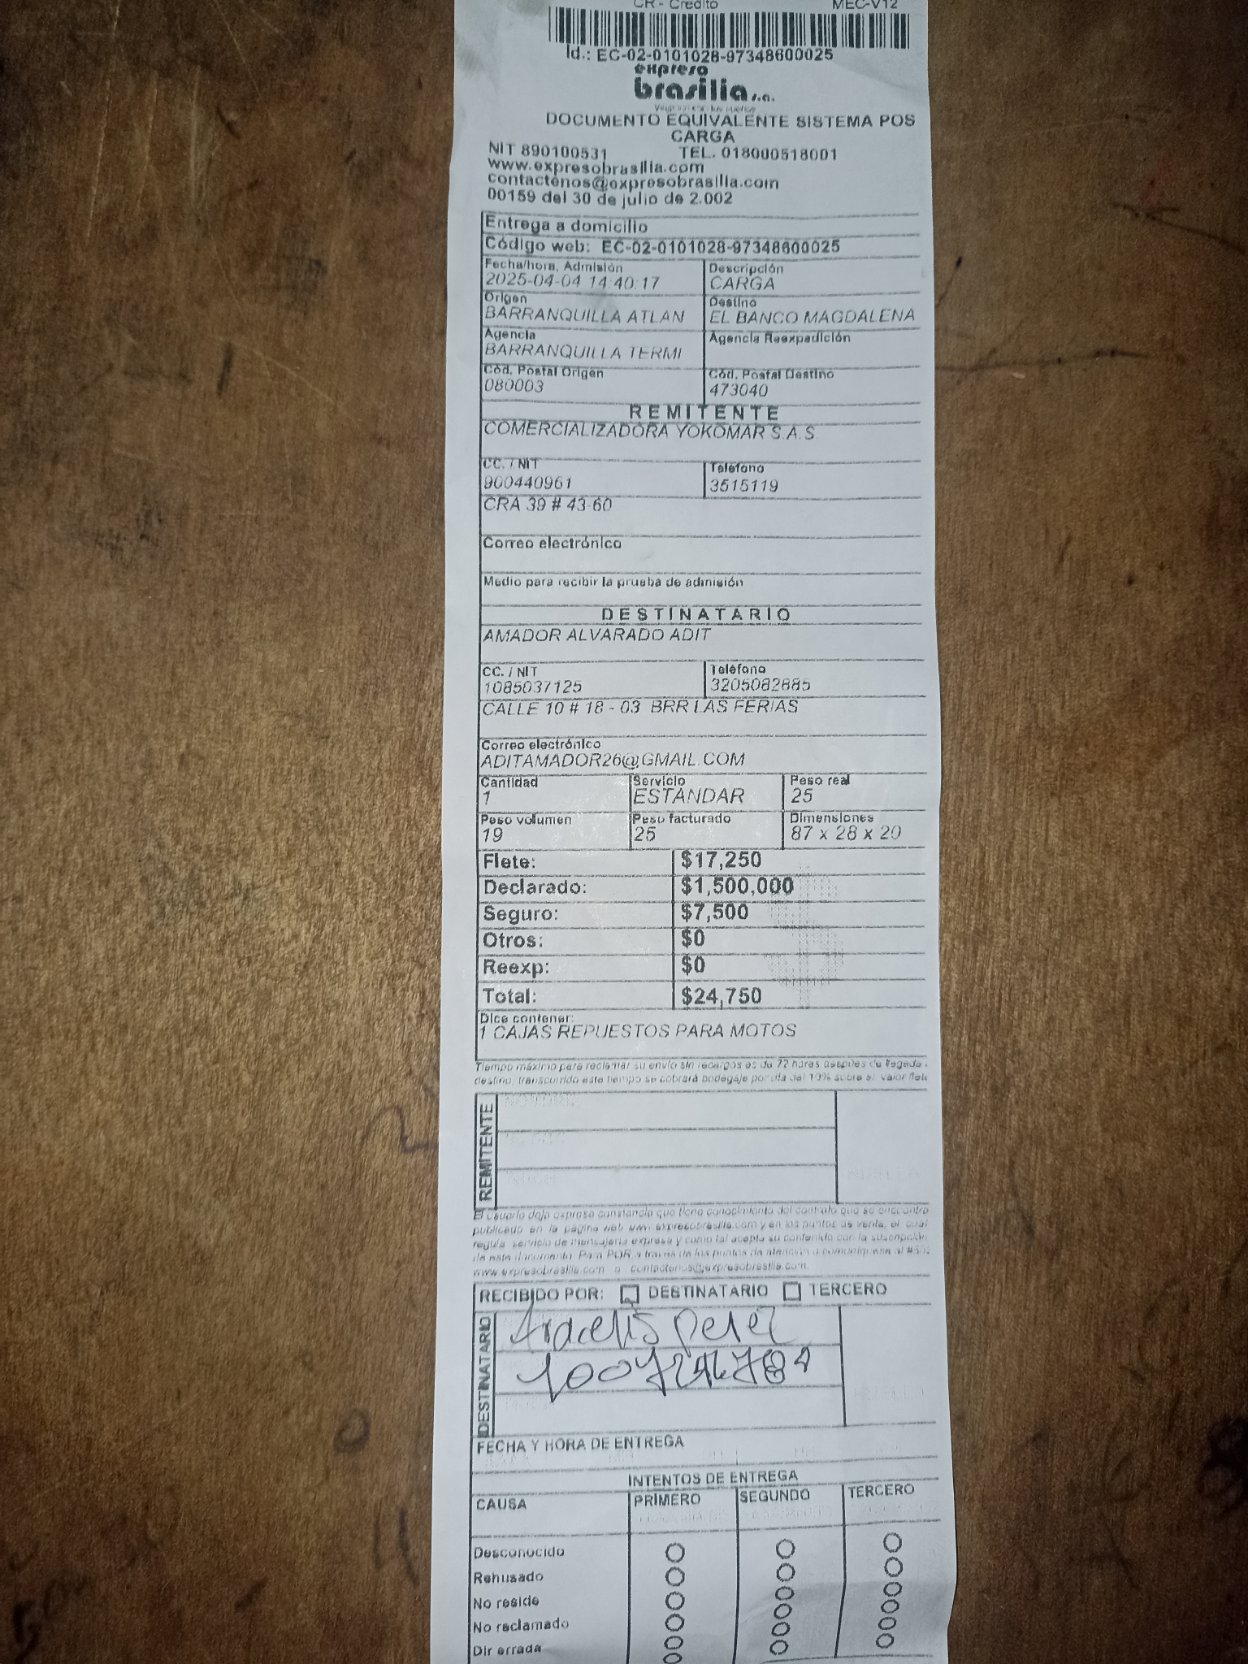 CR - Credito MEC-V12
Id.: EC-02-0101028-97348600025
expreso
brasilia s.a.
DOCUMENTO EQUIVALENTE SISTEMA POS
CARGA
NIT 890100531 TEL. 018000518001
www.expresobrasilia.com
contactenos@expresobrasilia.com
00159 del 30 de julio de 2.002
Entrega a domicilio
Código web: EC-02-0101028-97348600025
Fecha/hora, Admisión Descripción
2025-04-04 14:40:17 CARGA
Origen Destino
BARRANQUILLA ATLAN EL BANCO MAGDALENA
Agencia Agencia Reexpedición
BARRANQUILLA TERMI
Cód. Postal Origen Cód. Postal Destino
080003 473040
REMITENTE
COMERCIALIZADORA YOKOMAR S.A.S
CC. / NIT Teléfono
900440961 3515119
CRA 39 # 43-60
Correo electrónico
Medio para recibir la prueba de admisión
DESTINATARIO
AMADOR ALVARADO ADIT
CC. / NIT Teléfono
1085037125 3205082885
CALLE 10 # 18 - 03 BRR LAS FERIAS
Correo electrónico
ADITAMADOR26@GMAIL.COM
Cantidad Servicio Peso real
1 ESTANDAR 25
Peso volumen Peso facturado Dimensiones
19 25 87 x 28 x 20
Flete: $17,250
Declarado: $1,500,000
Seguro: $7,500
Otros: $0
Reexp: $0
Total: $24,750
Dice contener:
1 CAJAS REPUESTOS PARA MOTOS
Tiempo máximo para reclamar su envío sin recargos es de 72 horas después de llegada
destino, transcurrido este tiempo se cobrará bodegaje por día del 10% sobre el valor flete
REMITENTE
El usuario deja expresa constancia que tiene conocimiento del contrato que se encuentra
publicado en la página web www.expresobrasilia.com y en los puntos de venta, el cual
regula servicio de mensajería expresa y como tal acepta su contenido con la suscripción
de este documento. Para PQR a través de los puntos de atención o comuníquese al
www.expresobrasilia.com o contactenos@expresobrasilia.com.
RECIBIDO POR: DESTINATARIO TERCERO
DESTINATARIO
Aracelis Perez
FECHA Y HORA DE ENTREGA
INTENTOS DE ENTREGA
CAUSA PRIMERO SEGUNDO TERCERO
Desconocido
Rehusado
No reside
No reclamado
Dir errada